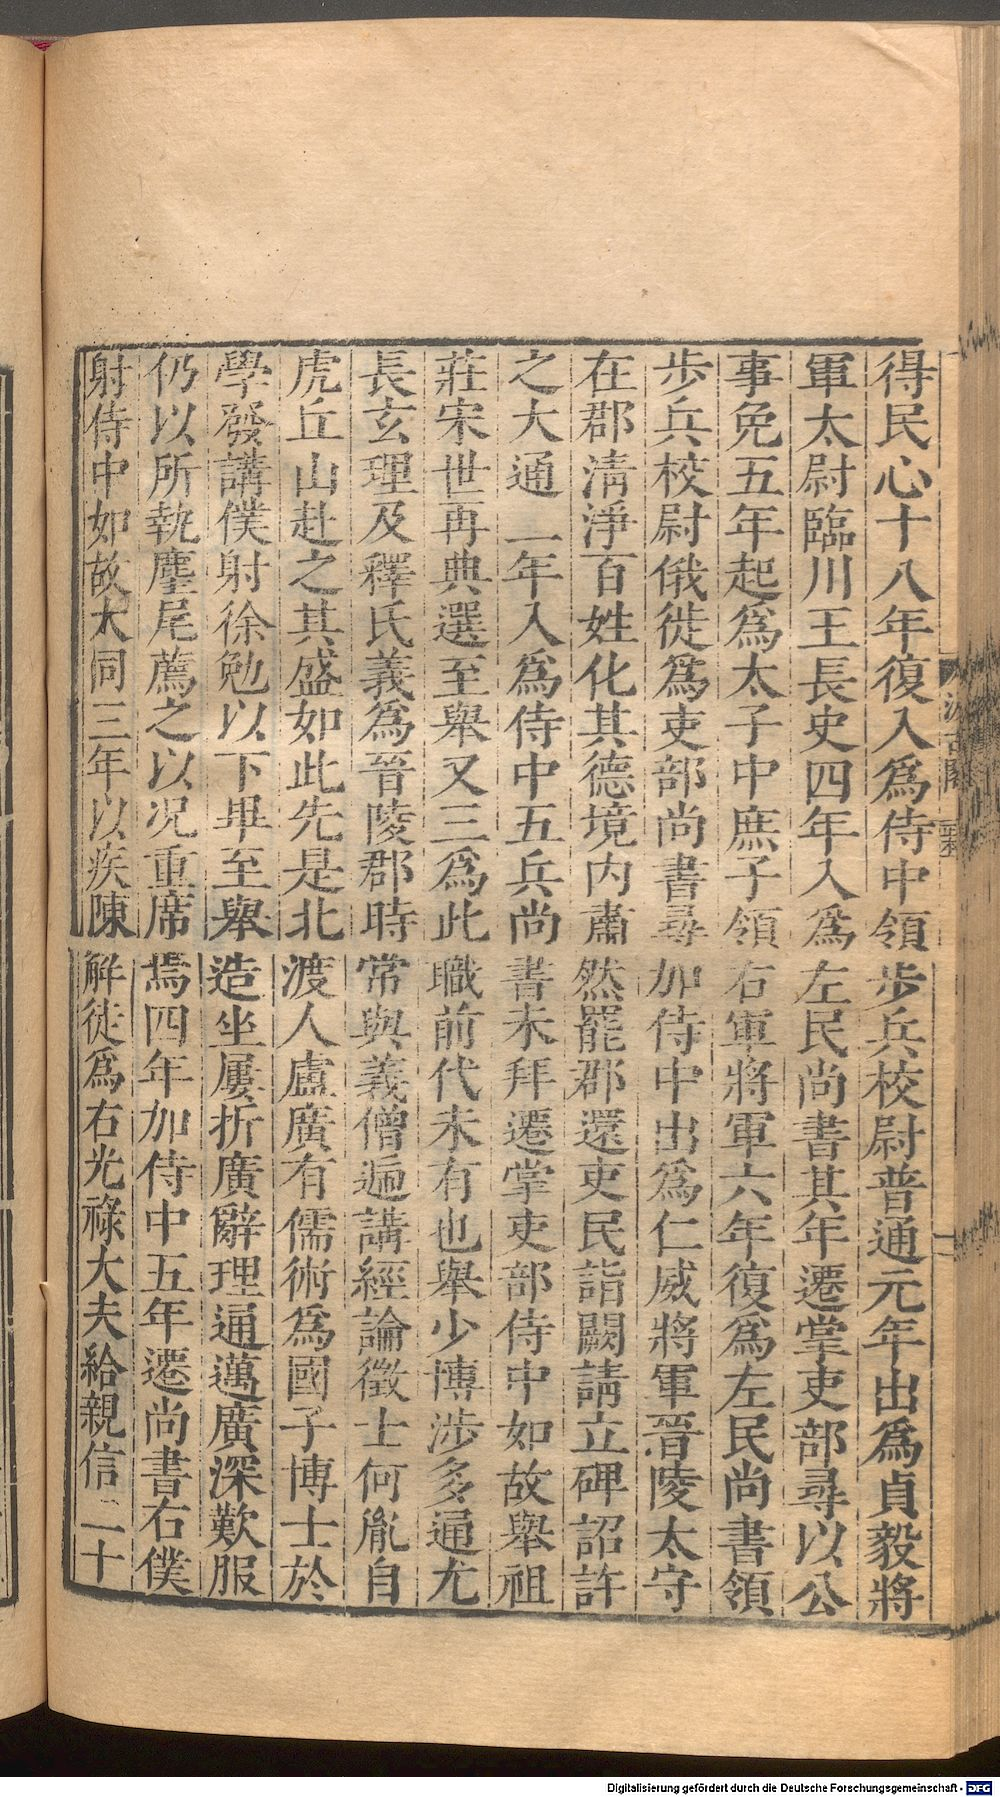 得民心十八年復入爲侍中領步兵校尉普通元年出爲貞毅將
軍太尉臨川王長史四年入爲左民尚書其年遷掌吏部尋以公
事免五年起爲太子中庶子領右軍將軍六年復爲左民尚書領
步兵校尉俄徙爲吏部尚書尋加侍中出爲仁威將軍晉陵太守
在郡淸淨百姓化其德境內肅然罷郡還吏民詣闕請立碑詔許
之大通二年入爲侍中五兵尚書未拜遷掌吏部侍中如故舉祖
莊宋世再典選至舉又三爲此職前代未有也舉少博涉多通尤
長玄理及釋氏義爲晉陵郡時常與義僧遍講經論徵士何胤自
虎丘山赴之其盛如此先是北渡人盧廣有儒術爲國子博士於
學發講僕射徐勉以下畢至舉造坐屢折廣辭理通邁廣深歎服
仍以所執麈尾薦之以况重席焉四年加侍中五年遷尚書右僕
射侍中如故大同三年以疾陳解徙爲右光祿大夫給親信二十
Digitalisierung gefördert durch die Deutsche Forschungsgemeinschaft - DFG